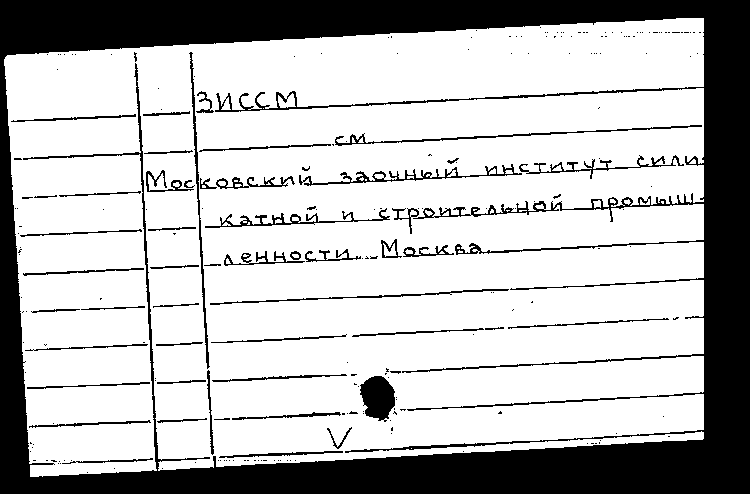 ЗИССМ
см
Московский заочный институт сили-
катной и строительной промыш-
ленности. Москва
V